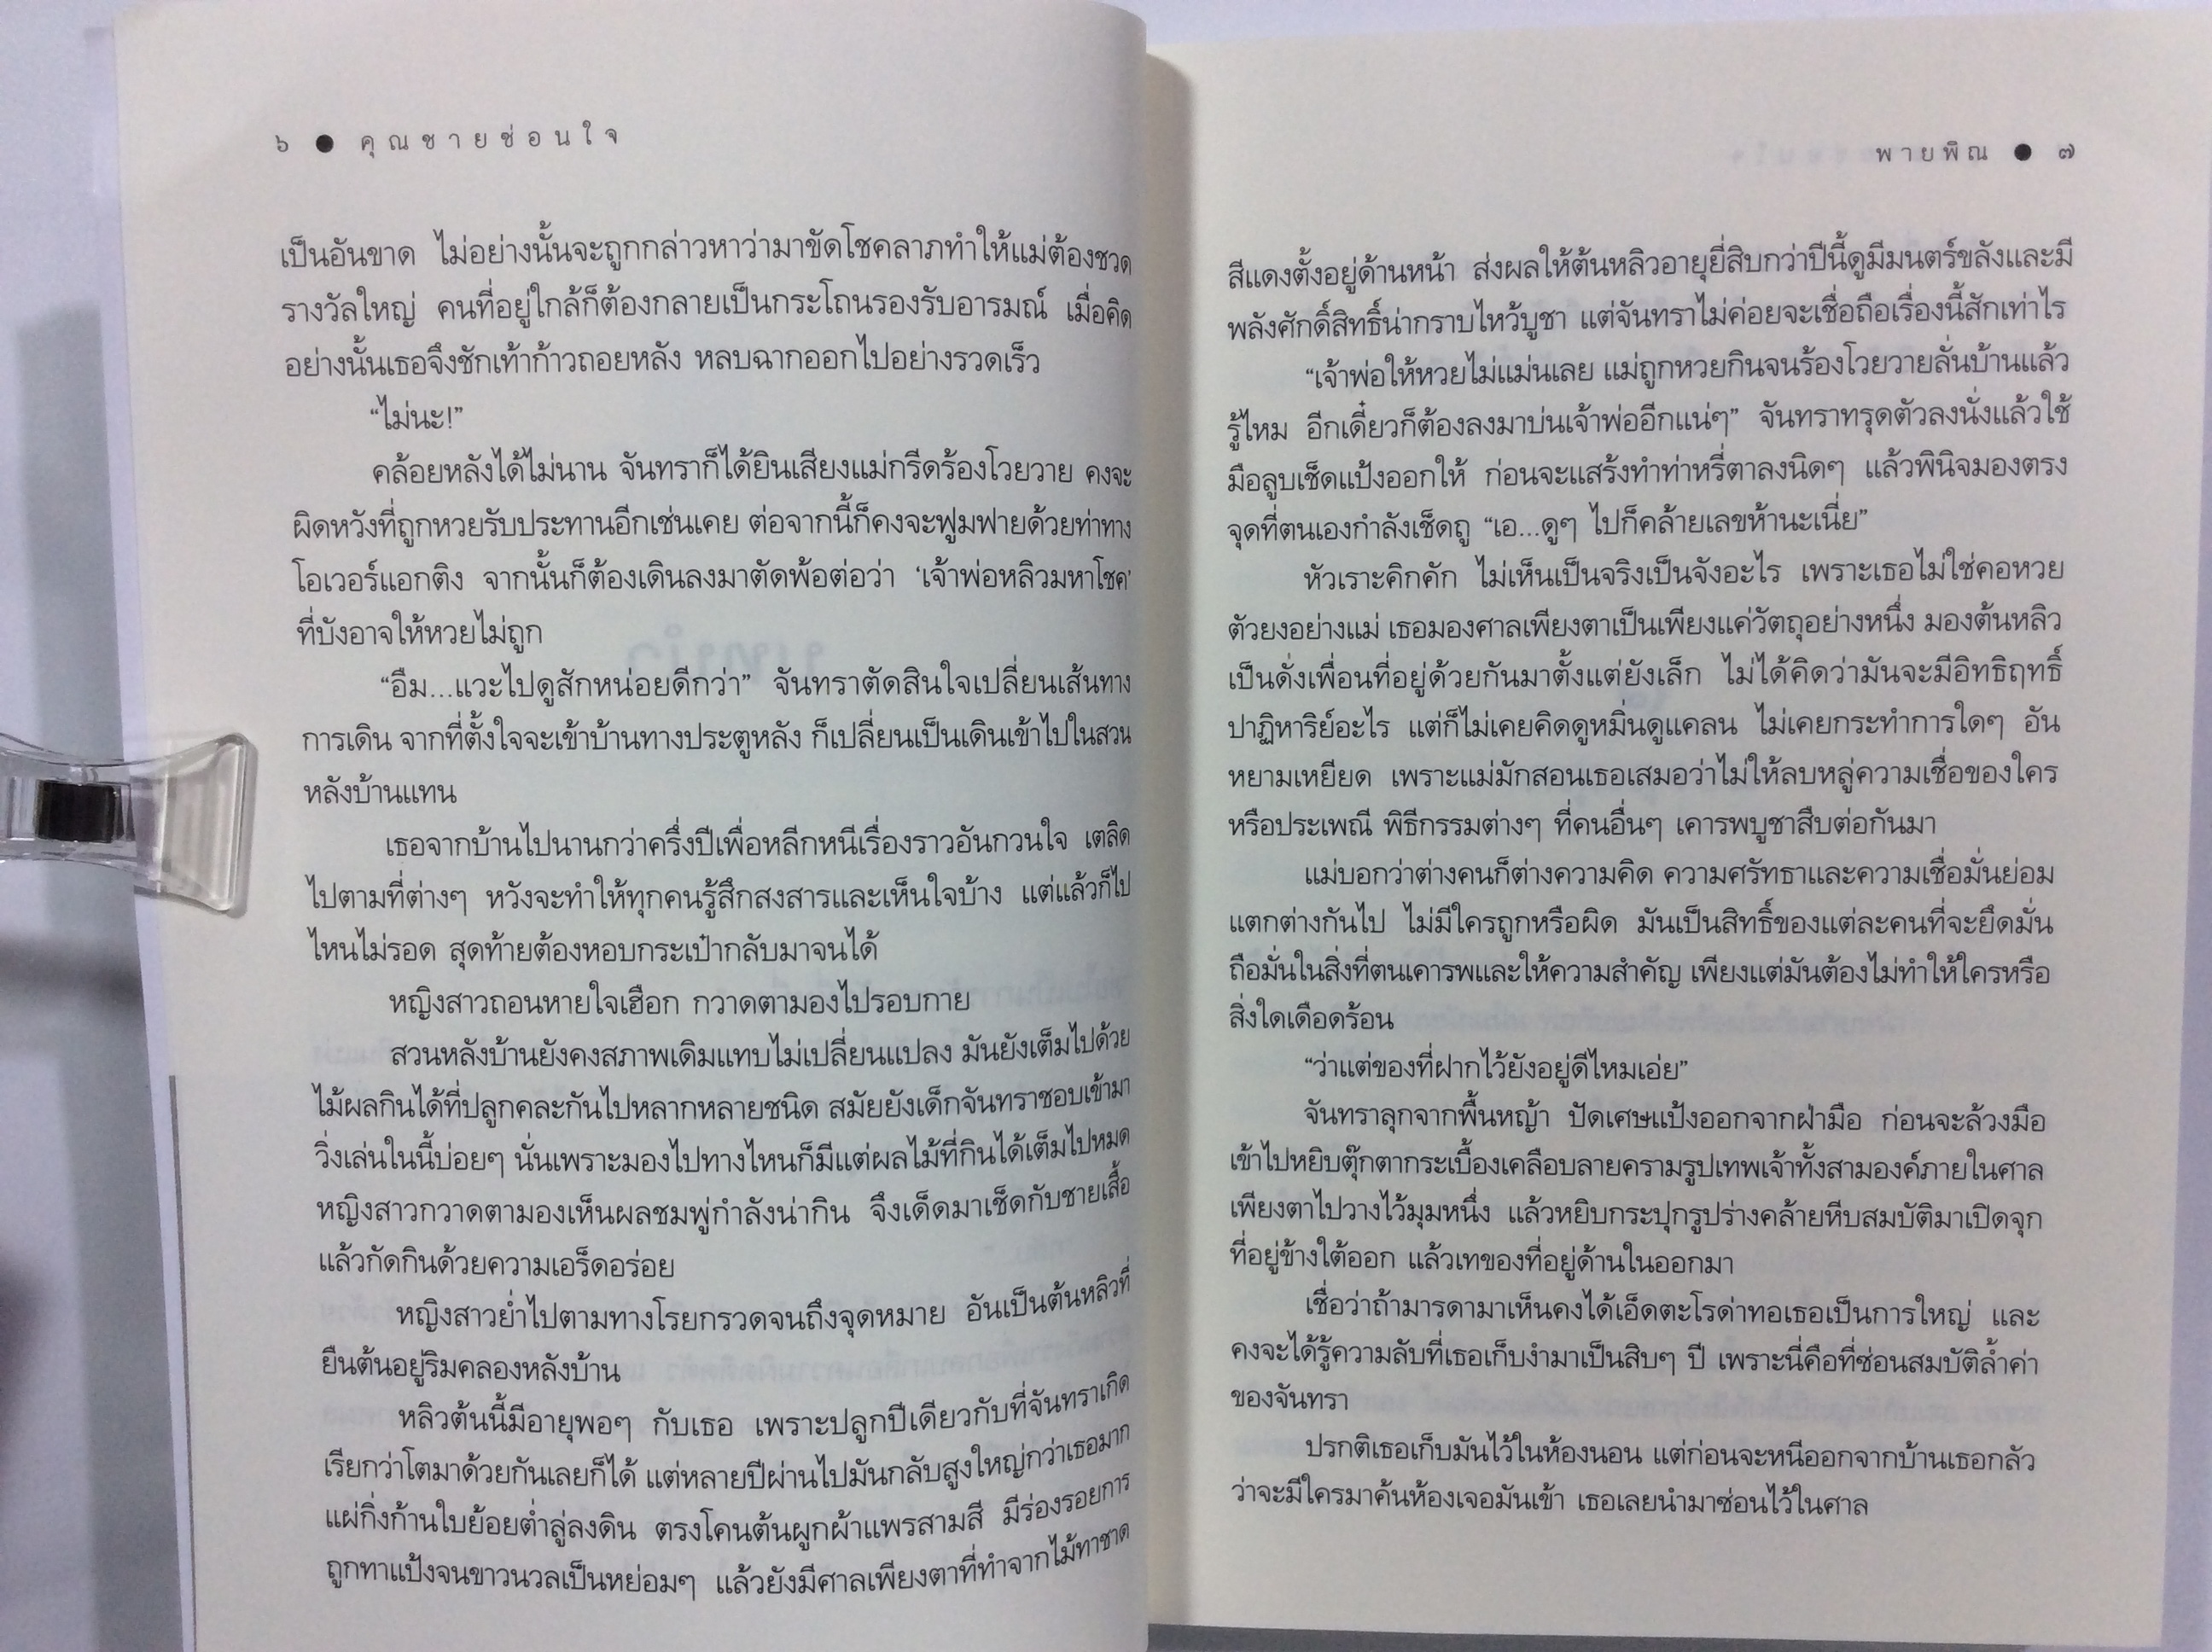 ๖ ● คุณชายซ่อนใจ
เป็นอันขาด ไม่อย่างนั้นจะถูกกล่าวหาว่ามาขัดโชคลาภทำให้แม่ต้องชวด
รางวัลใหญ่ คนที่อยู่ใกล้ก็ต้องกลายเป็นกระโถนรองรับอารมณ์ เมื่อคิด
อย่างนั้นเธอจึงชักเท้าก้าวถอยหลัง หลบฉากออกไปอย่างรวดเร็ว
“ไม่นะ!”
คล้อยหลังได้ไม่นาน จันทราก็ได้ยินเสียงแม่กรีดร้องโวยวาย คงจะ
ผิดหวังที่ถูกหวยรับประทานอีกเช่นเคย ต่อจากนี้ก็คงจะฟูมฟายด้วยท่าทาง
โอเวอร์แอกติง จากนั้นก็ต้องเดินลงมาตัดพ้อต่อว่า ‘เจ้าพ่อหลิวมหาโชค’
ที่บังอาจให้หวยไม่ถูก
“อืม...แวะไปดูสักหน่อยดีกว่า” จันทราตัดสินใจเปลี่ยนเส้นทาง
การเดิน จากที่ตั้งใจจะเข้าบ้านทางประตูหลัง ก็เปลี่ยนเป็นเดินเข้าไปในสวน
หลังบ้านแทน
เธอจากบ้านไปนานกว่าครึ่งปีเพื่อหลีกหนีเรื่องราวอันกวนใจ เตลิด
ไปตามที่ต่างๆ หวังจะทำให้ทุกคนรู้สึกสงสารและเห็นใจบ้าง แต่แล้วก็ไป
ไหนไม่รอด สุดท้ายต้องหอบกระเป๋ากลับมาจนได้
หญิงสาวถอนหายใจเฮือก กวาดตามองไปรอบกาย
สวนหลังบ้านยังคงสภาพเดิมแทบไม่เปลี่ยนแปลง มันยังเต็มไปด้วย
ไม้ผลกินได้ที่ปลูกคละกันไปหลากหลายชนิด สมัยยังเด็กจันทราชอบเข้ามา
วิ่งเล่นในนี้บ่อยๆ นั่นเพราะมองไปทางไหนก็มีแต่ผลไม้ที่กินได้เต็มไปหมด
หญิงสาวกวาดตามองเห็นผลชมพู่กำลังน่ากิน จึงเด็ดมาเช็ดกับชายเสื้อ
แล้วกัดกินด้วยความเอร็ดอร่อย
หญิงสาวย่ำไปตามทางโรยกรวดจนถึงจุดหมาย อันเป็นต้นหลิวที่
ยืนต้นอยู่ริมคลองหลังบ้าน
หลิวต้นนี้มีอายุพอๆ กับเธอ เพราะปลูกปีเดียวกับที่จันทราเกิด
เรียกว่าโตมาด้วยกันเลยก็ได้ แต่หลายปีผ่านไปมันกลับสูงใหญ่กว่าเธอมาก
แผ่กิ่งก้านใบย้อยต่ำลู่ลงดิน ตรงโคนต้นผูกผ้าแพรสามสี มีร่องรอยการ
ถูกทาแป้งจนขาวนวลเป็นหย่อมๆ แล้วยังมีศาลเพียงตาที่ทำจากไม้ทาชาด
พายพิณ ● ๗
สีแดงตั้งอยู่ด้านหน้า ส่งผลให้ต้นหลิวอายุยี่สิบกว่าปีนี้ดูมีมนตร์ขลังและมี
พลังศักดิ์สิทธิ์น่ากราบไหว้บูชา แต่จันทราไม่ค่อยจะเชื่อถือเรื่องนี้สักเท่าไร
“เจ้าพ่อให้หวยไม่แม่นเลย แม่ถูกหวยกินจนร้องโวยวายลั่นบ้านแล้ว
รู้ไหม อีกเดี๋ยวก็ต้องลงมาบ่นเจ้าพ่ออีกแน่ๆ” จันทราทรุดตัวลงนั่งแล้วใช้
มือลูบเช็ดแป้งออกให้ ก่อนจะแสร้งทำท่าหรี่ตาลงนิดๆ แล้วพินิจมองตรง
จุดที่ตนเองกำลังเช็ดถู “เอ...ดูๆ ไปก็คล้ายเลขห้านะเนี่ย”
หัวเราะคิกคัก ไม่เห็นเป็นจริงเป็นจังอะไร เพราะเธอไม่ใช่คอหวย
ตัวยงอย่างแม่ เธอมองศาลเพียงตาเป็นเพียงแค่วัตถุอย่างหนึ่ง มองต้นหลิว
เป็นดั่งเพื่อนที่อยู่ด้วยกันมาตั้งแต่ยังเล็ก ไม่ได้คิดว่ามันจะมีอิทธิฤทธิ์
ปาฏิหาริย์อะไร แต่ก็ไม่เคยคิดดูหมิ่นดูแคลน ไม่เคยกระทำการใดๆ อัน
หยามเหยียด เพราะแม่มักสอนเธอเสมอว่าไม่ให้ลบหลู่ความเชื่อของใคร
หรือประเพณี พิธีกรรมต่างๆ ที่คนอื่นๆ เคารพบูชาสืบต่อกันมา
แม่บอกว่าต่างคนก็ต่างความคิด ความศรัทธาและความเชื่อมั่นย่อม
แตกต่างกันไป ไม่มีใครถูกหรือผิด มันเป็นสิทธิ์ของแต่ละคนที่จะยึดมั่น
ถือมั่นในสิ่งที่ตนเคารพและให้ความสำคัญ เพียงแต่มันต้องไม่ทำให้ใครหรือ
สิ่งใดเดือดร้อน
“ว่าแต่ของที่ฝากไว้ยังอยู่ดีไหมเอ่ย”
จันทราลุกจากพื้นหญ้า ปัดเศษแป้งออกจากฝ่ามือ ก่อนจะล้วงมือ
เข้าไปหยิบตุ๊กตากระเบื้องเคลือบลายครามรูปเทพเจ้าทั้งสามองค์ภายในศาล
เพียงตาไปวางไว้มุมหนึ่ง แล้วหยิบกระปุกรูปร่างคล้ายหีบสมบัติมาเปิดจุก
ที่อยู่ข้างใต้ออก แล้วเทของที่อยู่ด้านในออกมา
เชื่อว่าถ้ามารดามาเห็นคงได้เอ็ดตะโรด่าทอเธอเป็นการใหญ่ และ
คงจะได้รู้ความลับที่เธอเก็บงำมาเป็นสิบๆ ปี เพราะนี่คือที่ซ่อนสมบัติล้ำค่า
ของจันทรา
ปรกติเธอเก็บมันไว้ในห้องนอน แต่ก่อนจะหนีออกจากบ้านเธอกลัว
ว่าจะมีใครมาค้นห้องเจอมันเข้า เธอเลยนำมาซ่อนไว้ในศาล